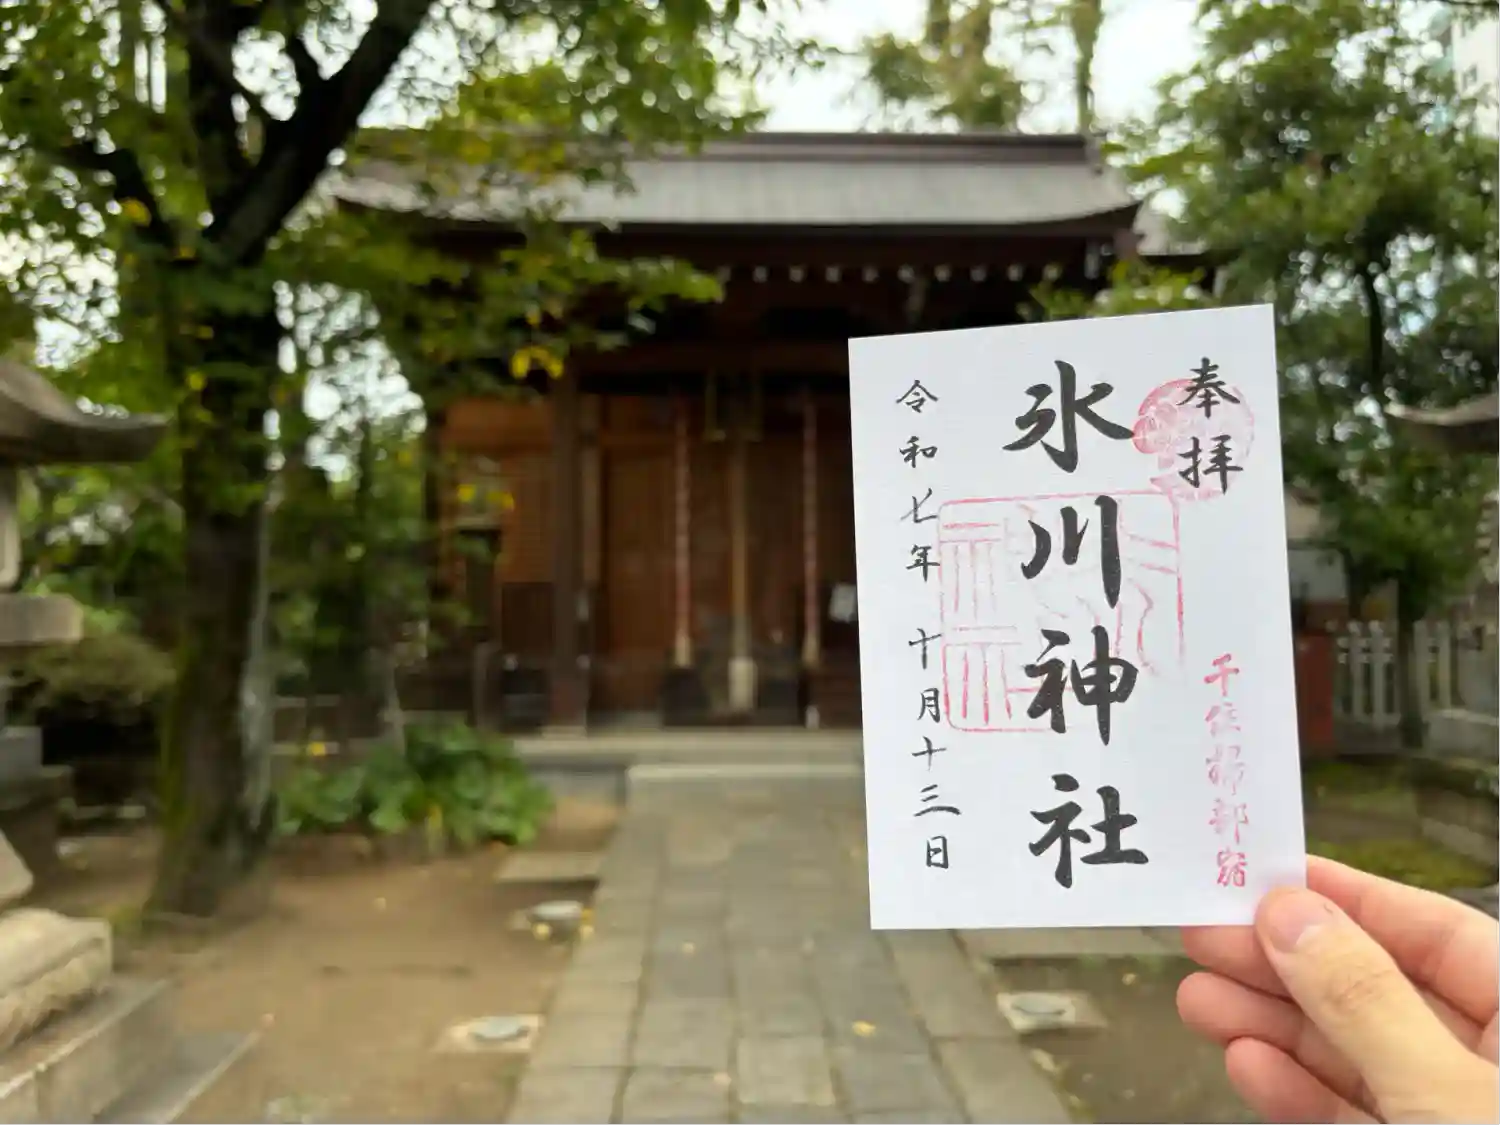 奉拝
千住掃部宿
氷川神社
令和七年十月十三日